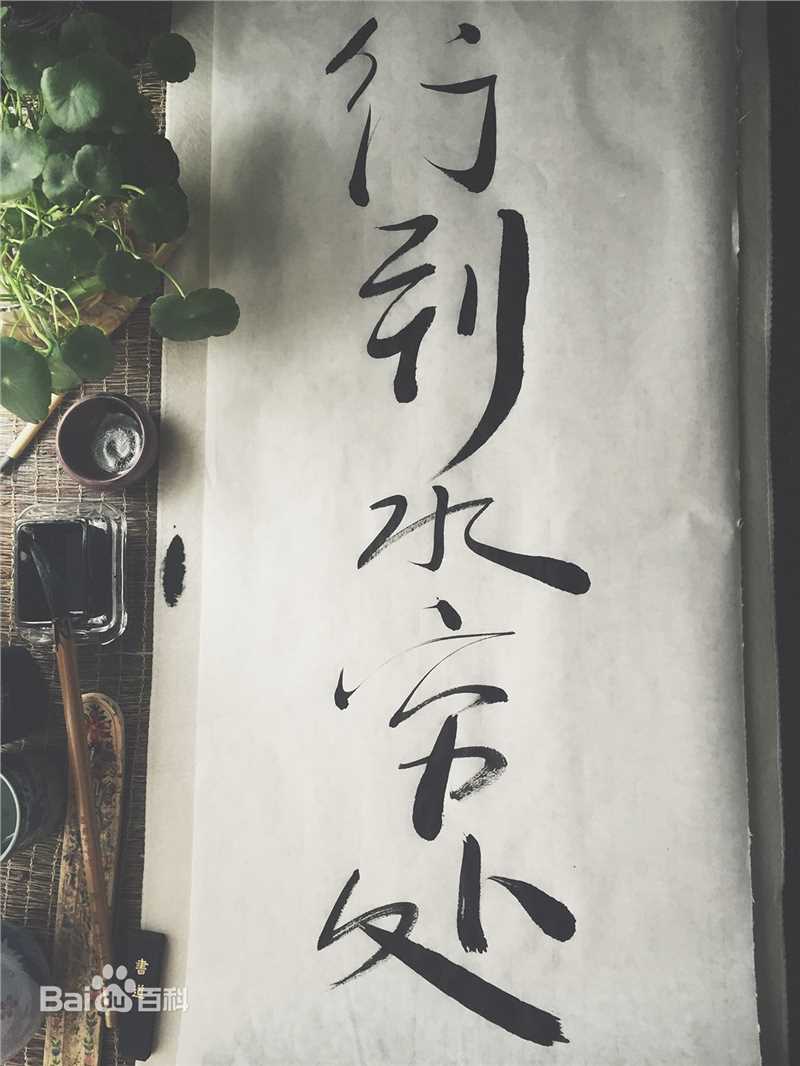 行到水穷处
書道
Bai百科